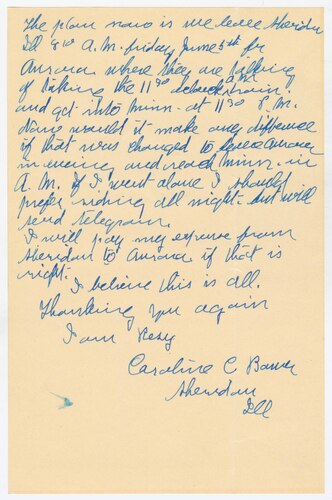 The plan now is we leave Sheridan
Ill 810 A.M. friday June 5th for
Aurora where they are talking
of taking the 1130 train. A.M.
and get into Minn. at 1130 P.M.
Now would it make any difference
if that was changed to leave Aurora
in evening and reach Minn. in
A.M. If I went alone I should
prefer riding all night. but will
send telegram.
I will pay my expense from
Sheridan to Aurora if that is
right.
I believe this is all.
Thanking you again
I am Resy
Caroline C
Sheridan
Ill